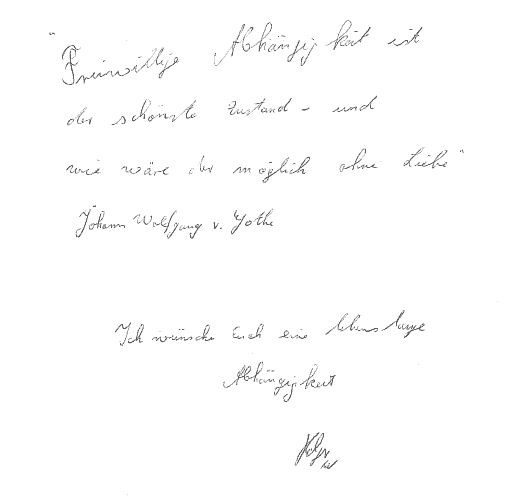 "Freiwillige Abhängigkeit ist
der schönste Zustand - und
wie wäre der möglich ohne Liebe"
Johann Wolfgang v. Gothe
Ich wünsche Euch eine lebenslange
Abhängigkeit